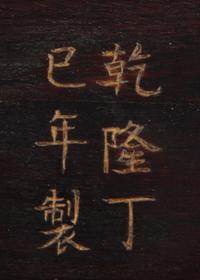 乾隆丁
巳年製